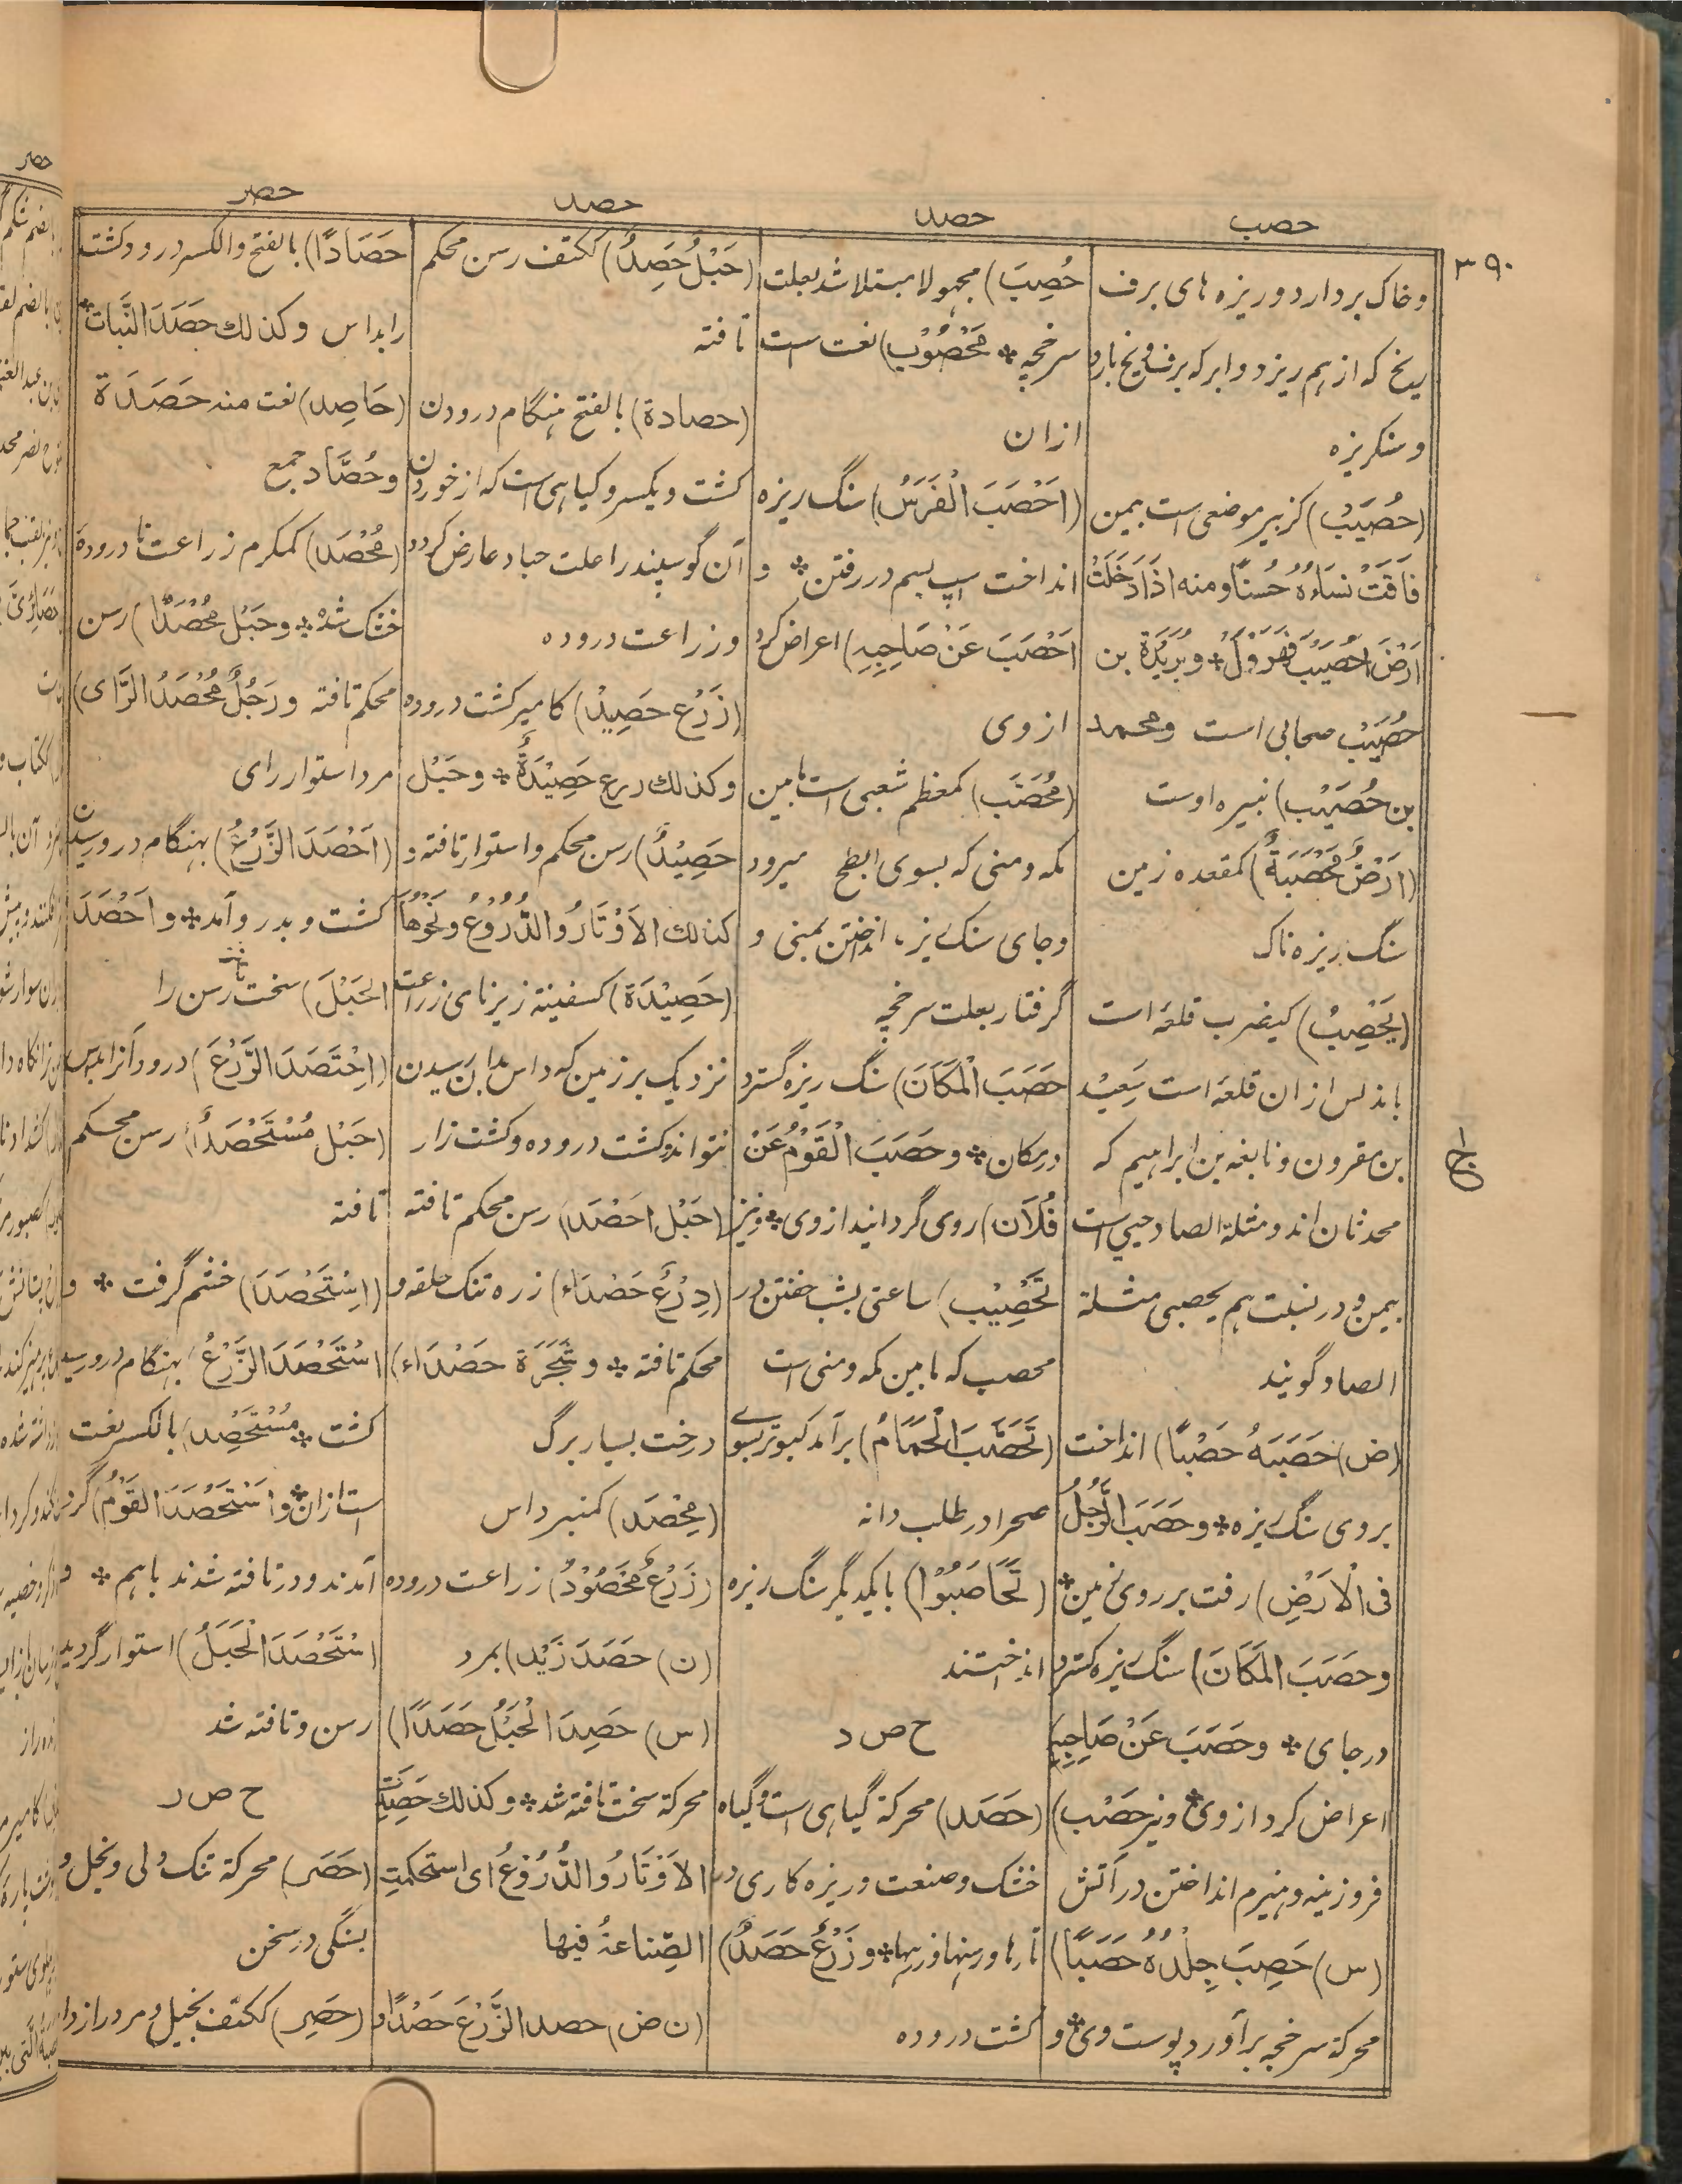 حصب
حصد
حصد
حصر
۳۹۰
وخاک بردارد و ریزه های برف
یخ که از هم ریزد و ابر که برف و یخ بارد
و سنگریزه
(حُصَیْب) کزبیر موضعی است بیمن
فَاقَتْ نِسَاءُهُ حُسْنًا ومنه اذَا دَخَلْتَ
اَرْضَ الحُصَیْبِ فَهَرْوِلْ * و بُرَیْدَة بن
حُصَیْب صحابی است و محمد
بن حُصَیْب) نبیره اوست
(اَرْضٌ مَحْصَبَةٌ) کمقعده زمین
سنگ ریزه ناک
(یَحْصِبُ) کیضرب قلعه است
باندلس ازان قلعه است سَعِیْد
بن مقرون و نابغه بن ابراهیم که
محدثان اند و مثلثة الصاد حیی است
بیمن و در نسبت هم یحصبی مثلثة
الصاد گویند
(ض) حَصَبَهُ حَصْبًا) انداخت
بروی سنگ ریزه * و حَصَبَ الرَّجُلُ
فی الْاَرْضِ) رفت بر روی زمین *
وحَصَبَ المَکَانَ) سنگ ریزه گسترد
در جای * و حَصَبَ عَنْ صَاحِبِهِ
اعراض کرد از وی * و نیز حَصْب)
فروزینه و هیزم انداختن در آتش
(س) حَصِبَ جِلْدُهُ حَصَبًا)
محرکة سرخجه برآورد پوست وی * و
حُصِبَ) مجهولا مبتلا شد بعلت
سرخجه * مَحْصُوْب) نعت است
ازان
(اَحْصَبَ الْفَرَسُ) سنگ ریزه
انداخت اسپ بسم در رفتن * و
اَحْصَبَ عَنْ صَاحِبِهِ) اعراض کرد
از وی
(مُحَصَّب) کمعظم شعبی است مابین
مکه و منی که بسوی ابطح میرود
و جای سنگ ریزه انداختن بمنی و
گرفتار بعلت سرخجه
حَصَّبَ الْمَکَانَ) سنگ ریزه گسترد
در مکان * و حَصَّبَ الْقَوْمُ عَنْ
فُلَانٍ) روی گردانید از وی * و نیز
تَحْصِیْب) ساعتی بشب خفتن در
محصب که مابین مکه و منی است
(تَحَصَّبَ الْحَمَامُ) برآمد کبوتر بسوے
صحرا در طلب دانه
(تَحَاصَبُوْا) بایکدیگر سنگ ریزه
انداختند
ح ص د
(حَصَد) محرکة گیاهی است و گیاه
خشک و صنعت و ریزه کاری در
تارها و رسنها و زرهها * و زَرْعٌ حَصَدٌ)
کشت دروده
(حَبْلٌ حَصِدٌ) ککتف رسن محکم
تافته
(حصادة) بالفتح هنگام درودن
کشت و یکسر و گیاهی است که از خوردن
آن گوسپند را علت حباد عارض گردد
و زراعت دروده
(زَرْع حَصِیْد) کامیر کشت دروده
و کذلك درع حَصِیْدَةٌ * و حَبْل
حَصِیْدٌ) رسن محکم و استوار تافته و
کذلك الاَوْتَارُ والدُّرُوْعُ ونَحْوُهَا
(حَصِیْدَة) کسفینة زیرنای زراعت
نزدیک بر زمین که داس بدان رسیدن
نتواند و کشت دروده و کشت زار
(حَبْل اَحْصَد) رسن محکم تافته
(دِرْعٌ حَصْدَاء) زره تنک حلقه و
محکم تافته * و شَجَرَة حَصْدَاء)
درخت بسیار برگ
(مِحْصَد) کمنبر داس
(زَرْعٌ مَحْصُوْدٌ) زراعت دروده
(ن) حَصَدَ زَیْد) بمرد
(س) حَصِدَ الْحَبْلُ حَصَدًا)
محرکة سخت تافته شد * و کذلك حَصِدَتِ
الاَوْتَارُ والدُّرُوْعُ ای استحکمت
الصِّناعةُ فیها
(ن ض) حصد الزَّرْعَ حَصْدًا و
حَصَادًا) بالفتح والکسر درود کشت
را بداس و کذلك حَصَدَ النَّبَاتَ *
(حَاصِد) نعت منه حَصَدَة
و حُصَّاد جمع
(مُحْصَد) کمکرم زراعت نا دروده
خشک شده * و حَبْل مُحْصَدٌ) رسن
محکم تافته و رَجُلٌ مُحْصَدُ الرَّای)
مرد استوار رای
(اَحْصَدَ الزَّرْعُ) بهنگام درو رسیدن
کشت و بدرو آمد * و اَحْصَدَ
الحَبْلَ) سخت تافت رسن را
(اِحْتَصَدَ الزَّرْعَ) درود آنرا بداس
(حَبْل مُسْتَحْصَدٌ) رسن محکم
تافته
(اِسْتَحْصَدَ) خشم گرفت * و
اسْتَحْصَدَ الزَّرْعُ) بهنگام درو رسید
کشت * مُسْتَحْصِد) بالکسر نعت
است ازان * و اسْتَحْصَدَ القَوْمُ) گرد
آمدند و در تافته شدند باهم * و
اسْتَحْصَدَ الْحَبْلُ) استوار گردید
رسن و تافته شد
ح ص ر
(حَصَر) محرکة تنگ دلی و بخل و
بستگی در سخن
(حَصِر) ککتف بخیل و مرد راز دار